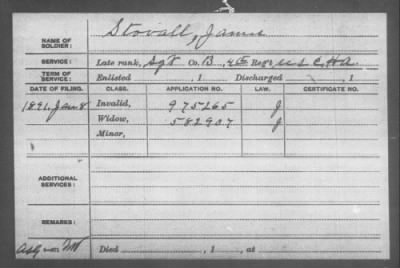 NAME OF SOLDIER: Stovall, James
SERVICE: Late rank, Sgt Co. B, 4th Reg't U S C H A.
TERM OF SERVICE: Enlisted , 1 Discharged , 1
DATE OF FILING. CLASS. APPLICATION NO. LAW. CERTIFICATE NO.
1891. Jan 8 Invalid, 975265 J
Widow, 582907 J
Minor,
ADDITIONAL SERVICES:
REMARKS:
Died , 1 , at